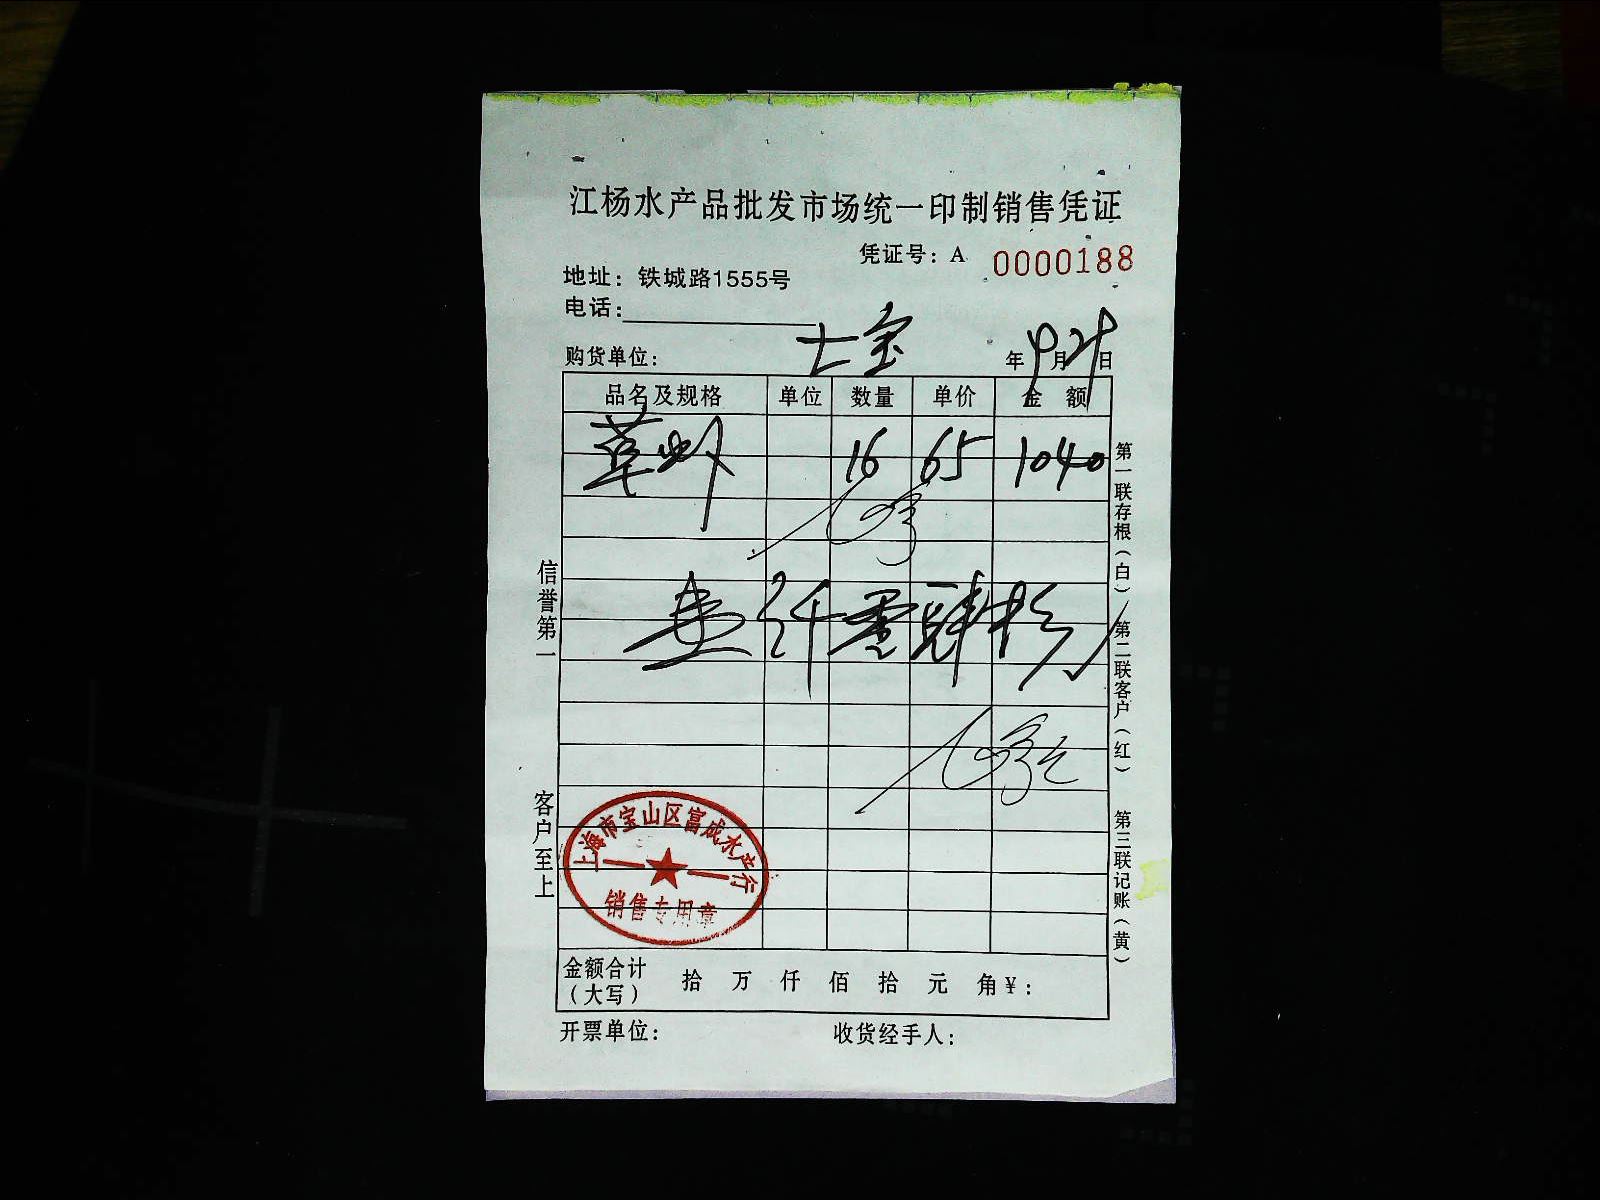 江杨水产品批发市场统一印制销售凭证
凭证号：A 0000188
地址：铁城路1555号
电话：
购货单位： 七宝 年9月29日
品名及规格 单位 数量 单价 金额
草虾 16 65 1040
壹仟零肆拾
上海市宝山区富成水产行
销售专用章
金额合计（大写） 拾 万 仟 佰 拾 元 角 ¥：
开票单位： 收货经手人：
信誉第一
客户至上
第一联存根（白） 第二联客户（红） 第三联记账（黄）